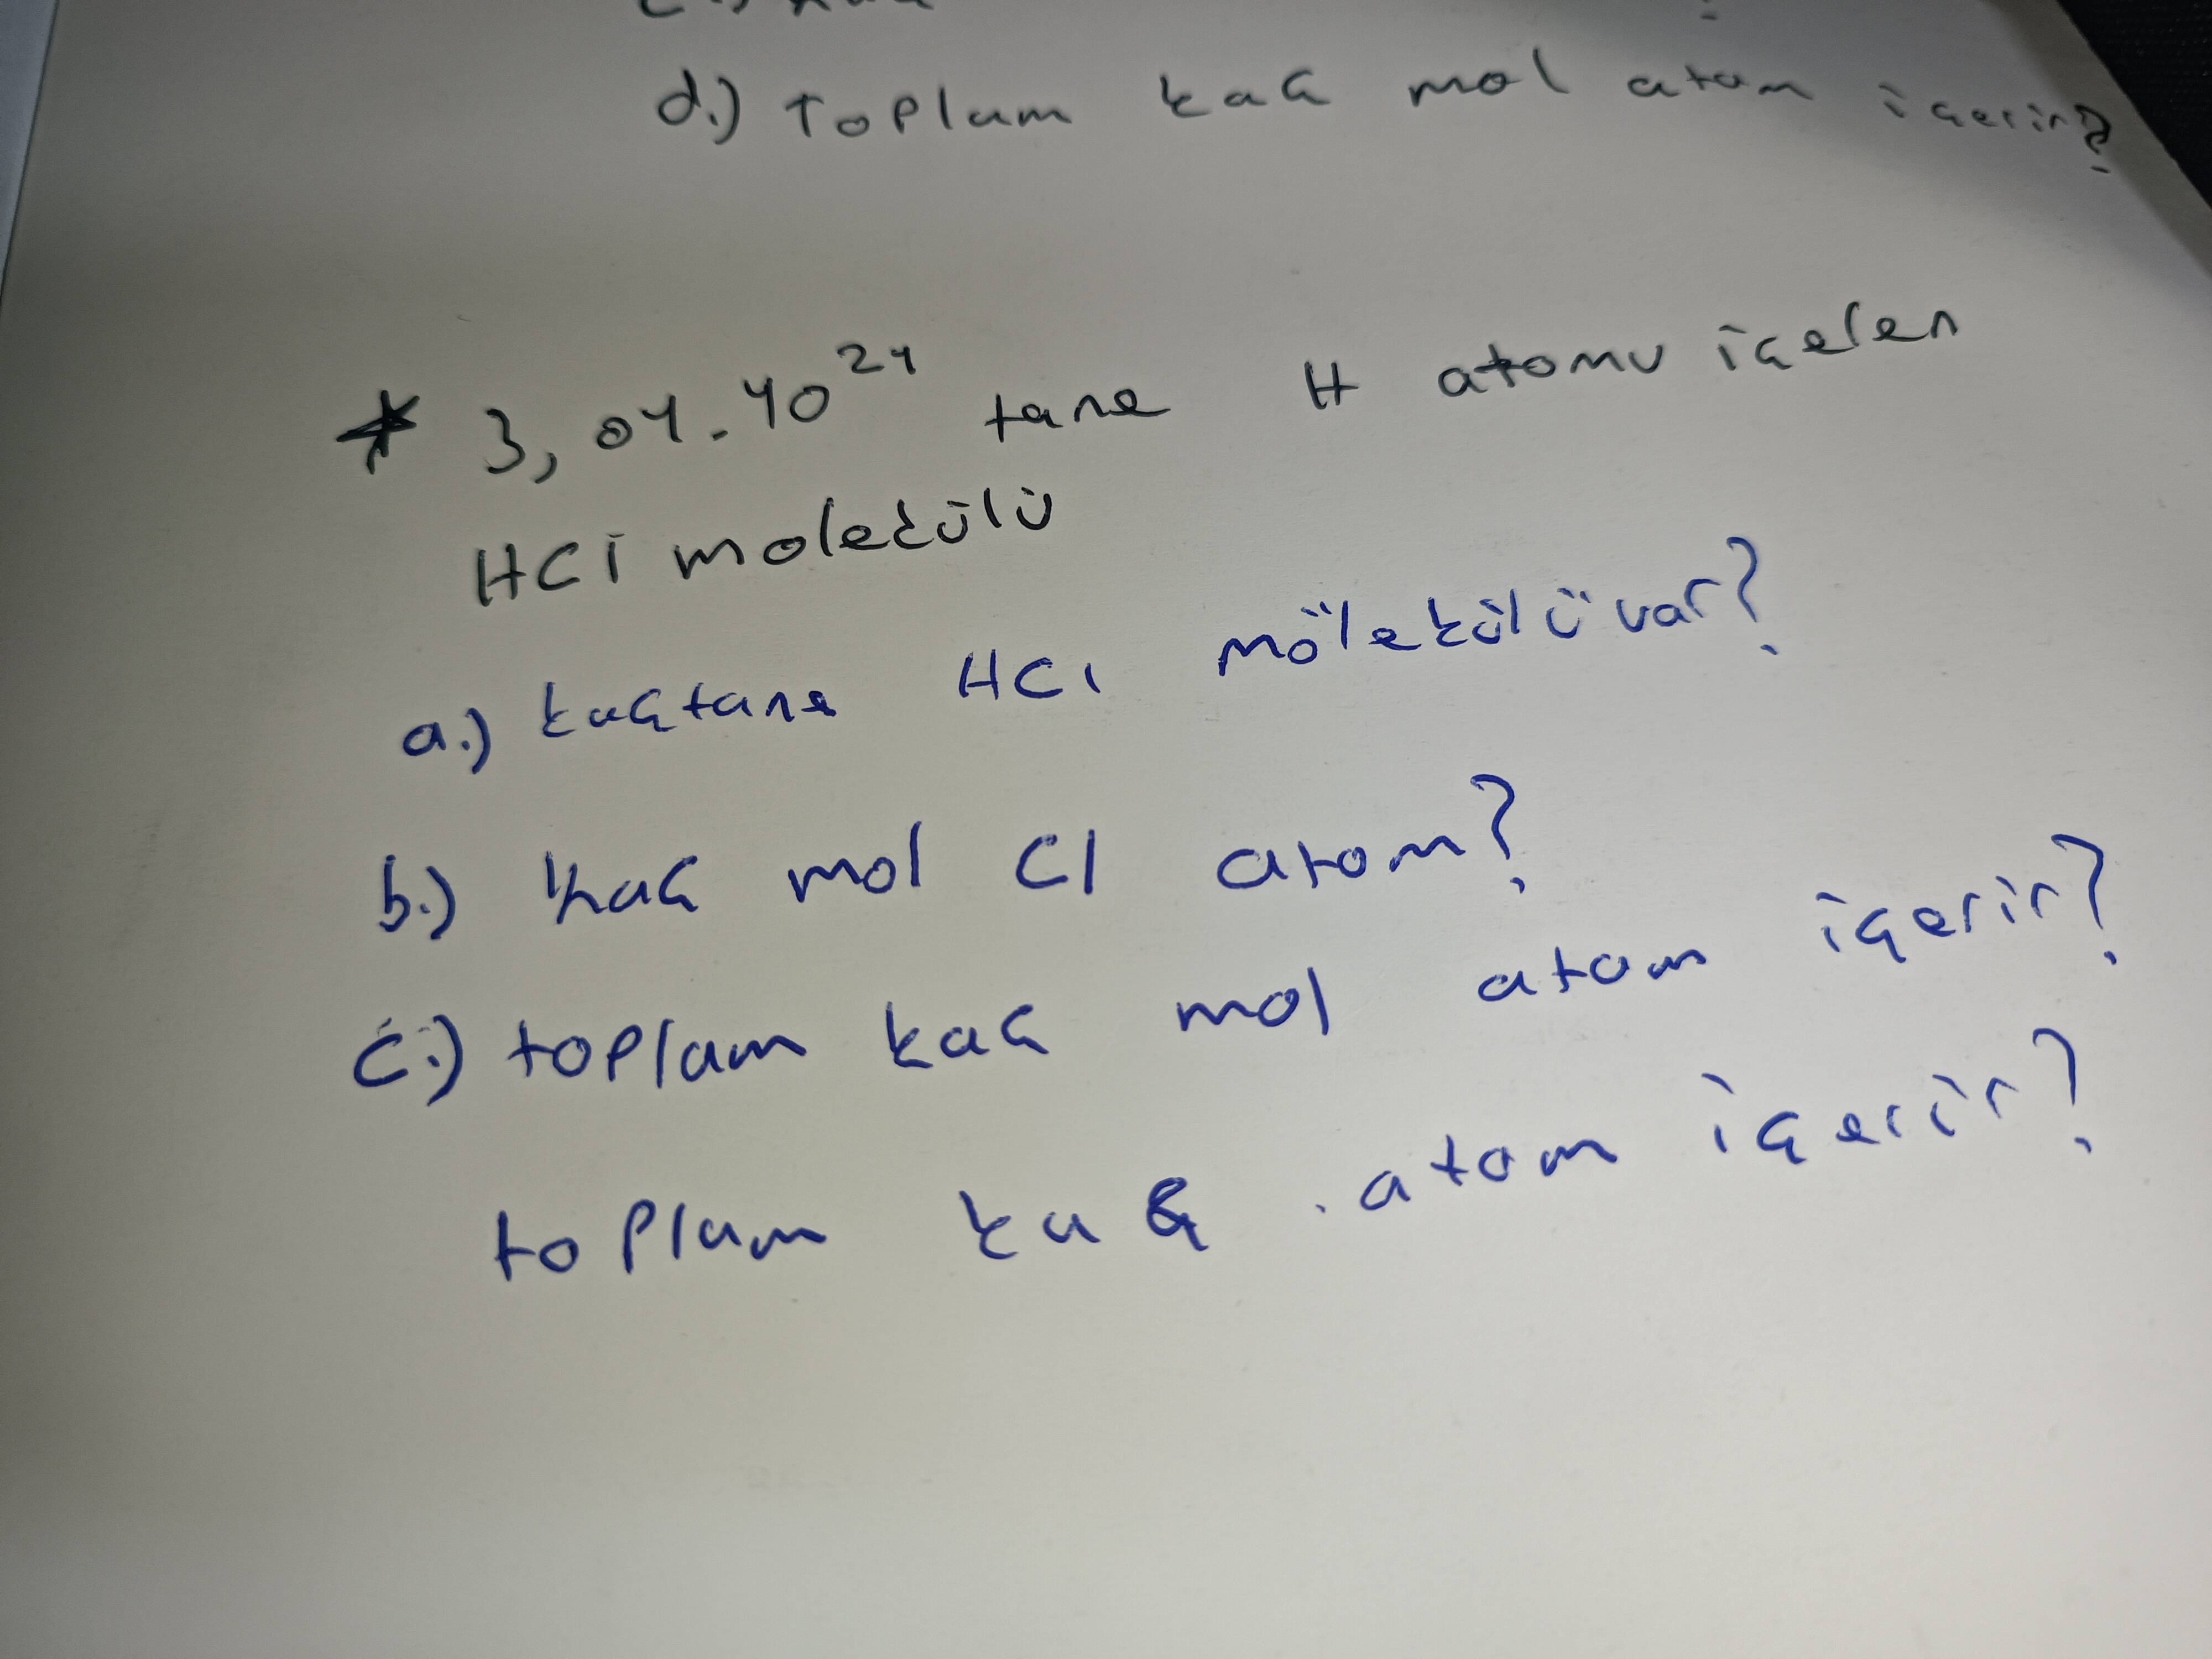 d.) Toplam kaç mol atom içerir?
* 3,01.10²⁴ tane H atomu içeren
HCl molekülü
a.) kaçtane HCl mölekülü var?
b.) kaç mol Cl atom?
c.) toplam kaç mol atom içerir?
toplam kaç atom içerir?